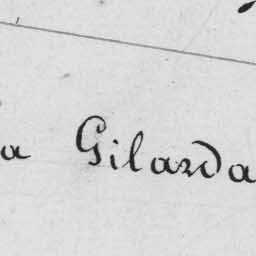 a Gilarda